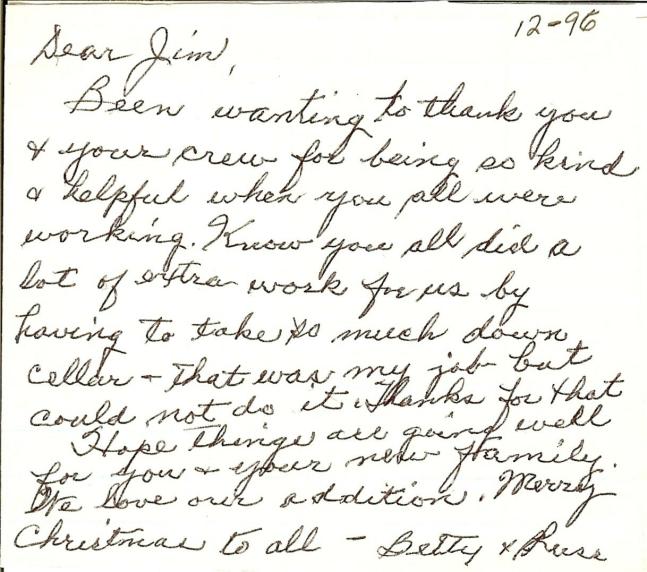 12-96
Dear Jim,
Been wanting to thank you
& your crew for being so kind
& helpful when you all were
working. Know you all did a
lot of extra work for us by
having to take so much down
cellar - That was my job but
could not do it. Thanks for that
Hope things are going well
for you & your new family.
We love our addition. Merry
Christmas to all - Betty & Russ